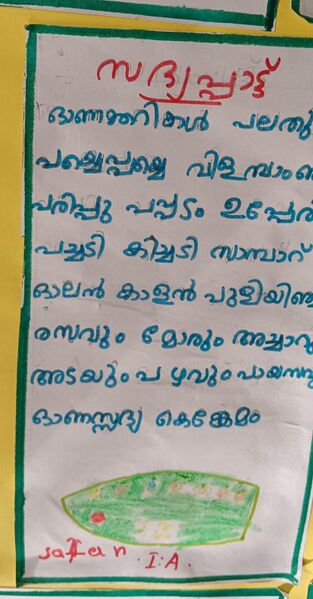 സദ്യപ്പാട്ട്
ഓണക്കറികൾ പലതു
പച്ചെപ്പയ്യെ വിളമ്പാം
പരിപ്പു പപ്പടം ഉപ്പേരി
പച്ചടി കിച്ചടി സാമ്പാറ്
ഓലൻ കാളൻ പുളിയിഞ്ച
രസവും മോരും അച്ചാറു
അടയും പഴവും പായസവു
ഓണസ്സദ്യ കെങ്കേമം
I:A.